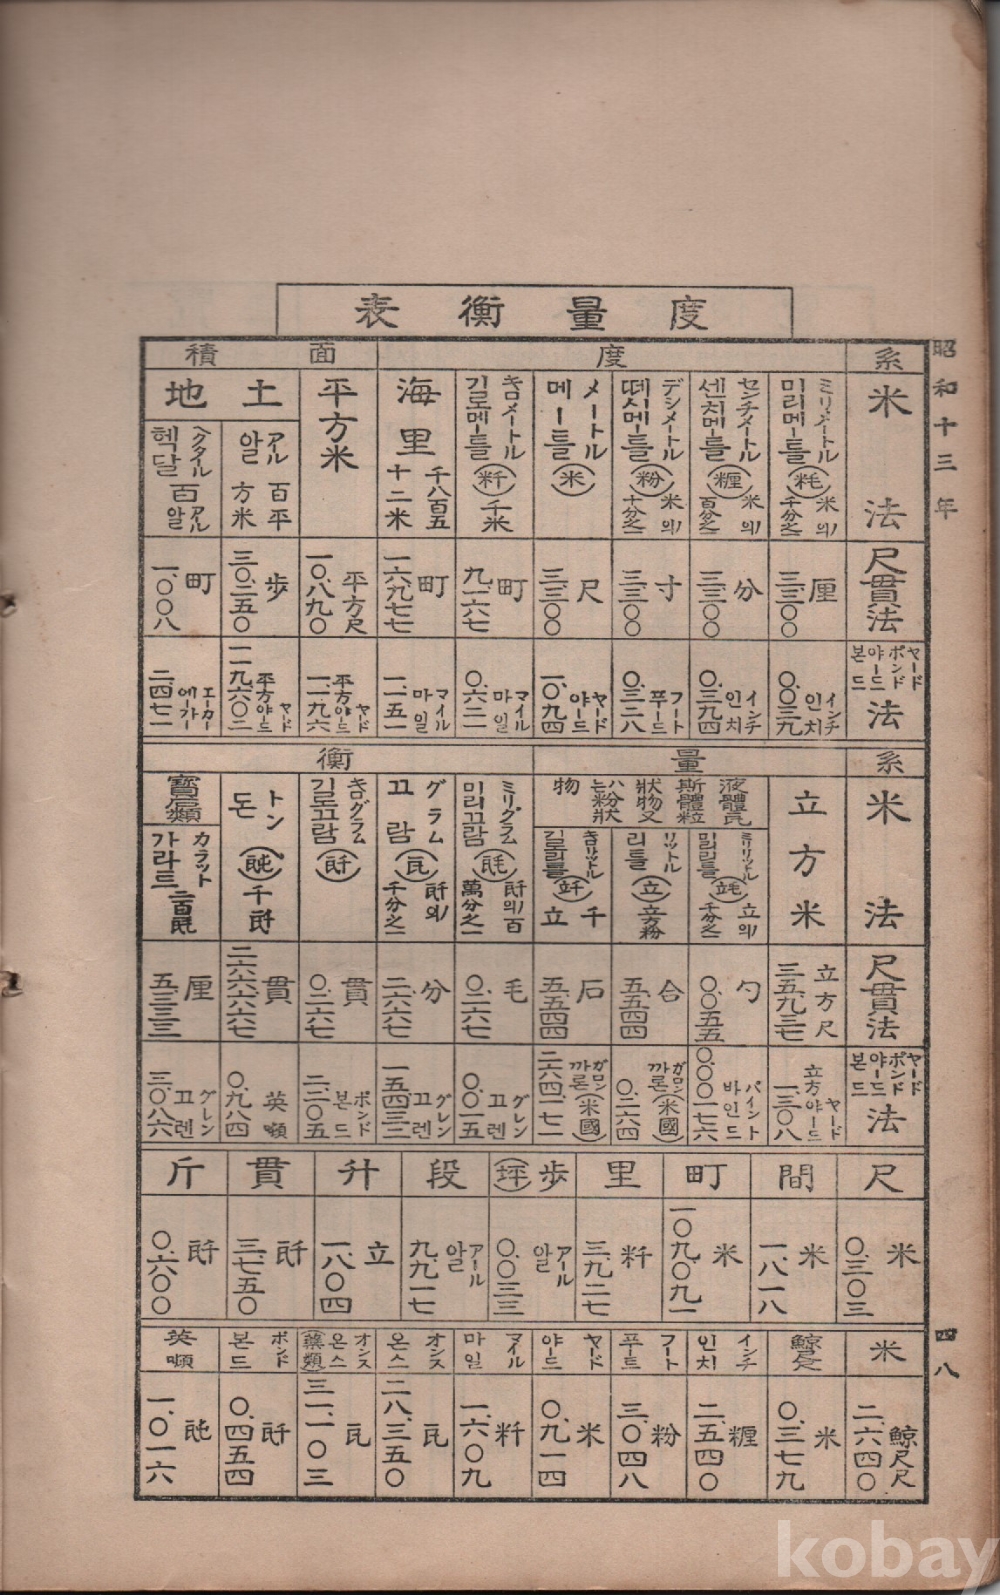 昭和十三年
四八
度量衡表
系 度 面積
米法
ミリメートル 미리메ー틀 (粍) 米의 千分之一
センチメートル 센치메ー틀 (糎) 米의 百分之一
デシメートル 떼시메ー틀 (粉) 米의 十分之一
メートル 메ー틀 (米)
キロメートル 기로메ー틀 (粁) 千米
海里 千八百五十二米
平方米
土地
アール 알 百平方米
ヘクタール 헥달 百アール 알
尺貫法
厘 三三〇〇
分 三三〇〇
寸 三三〇〇
尺 三三〇〇
町 九一六七
町 一六九七七
平方尺 一〇.八九〇
歩 三〇.二五〇
町 一.〇〇八
ヤードポンド 야ー드본드 法
インチ 인치 〇.〇三九
インチ 인치 〇.三九四
フート 푸ー드 〇.三二八
ヤード 야ー드 一.〇九四
マイル 마일 〇.六二一
マイル 마일 一.一五一
平方ヤード 平方야ー드 一.一九六
平方ヤード 平方야ー드 一一九.六〇二
エーカー 에ー가ー 二.四七一
系 量 衡
米法
立方米
液體瓦斯體粒狀物又ハ는粉狀物
ミリリットル 미리리틀 (竓) 立의 千分之一
リットル 리틀 (立) 立方粉
キロリットル 길로리틀 (竏) 千立
ミリグラム 미리끄람 (瓱) 瓩의 百萬分之一
グラム 끄람 (瓦) 瓩의 千分之一
キログラム 기로끄람 (瓩)
トン 돈 (瓲) 千瓩
寶石類
カラット 가라트 二百瓱
尺貫法
立方尺 三五.九三七
勺 〇.〇五五
合 五.五四四
石 五.五四四
毛 〇.二六七
分 二.六六七
貫 〇.二六七
貫 二六六.六六七
厘 五.三三三
ヤードポンド 야ー드본드 法
立方ヤード 立方야ー드 一.三〇八
パイント 바인드 〇.〇〇一七六
ガロン 까론 (米國) 〇.二六四
ガロン 까론 (米國) 二六四.一七一
グレン 끄렌 〇.〇一五
グレン 끄렌 一五.四三二
ポンド 본드 二.二〇五
英噸 〇.九八四
グレン 끄렌 三.〇八六
尺 間 町 里 歩(坪) 段 升 貫 斤
米 〇.三〇三
米 一.八一八
米 一〇九.〇九一
粁 三.九二七
アール 알 〇.〇三三
アール 알 九.九一七
立 一.八〇四
瓩 三.七五〇
瓩 〇.六〇〇
米 鯨尺 インチ 인치 フート 푸ー트 ヤード 야ー드 マイル 마일 オンス 온스 オンス 온스 (藥類) ポンド 본드 英噸
鯨尺尺 二.六四〇
米 〇.三七九
糎 二.五四〇
粉 三.〇四八
米 〇.九一四
粁 一.六〇九
瓦 二八.三五〇
瓦 三一.一〇三
瓩 〇.四五四
瓲 一.〇一六
kobay